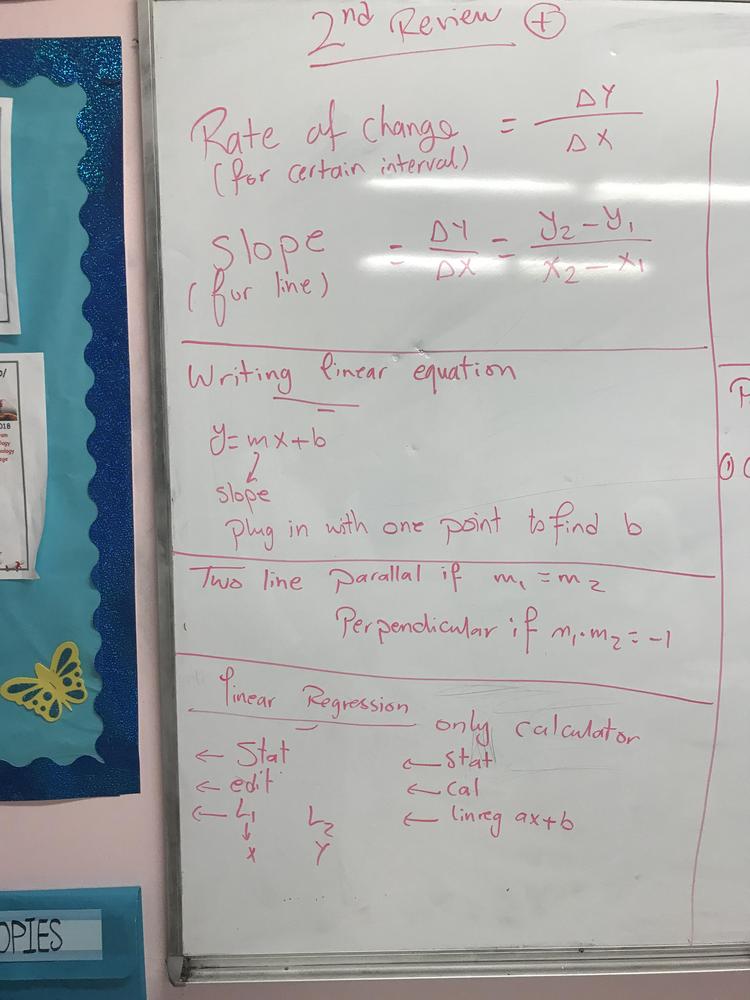 2nd Review +
Rate of change = ΔY / ΔX
(for certain interval)
Slope = ΔY / ΔX = y2 - y1 / x2 - x1
(for line)
Writing linear equation
y = mx + b
slope
plug in with one point to find b
Two line parallal if m1 = m2
Perpendicular if m1 · m2 = -1
linear Regression only calculator
← Stat ← Stat
← edit ← cal
← L1 L2 ← linreg ax+b
x y
① C
OPIES
2018